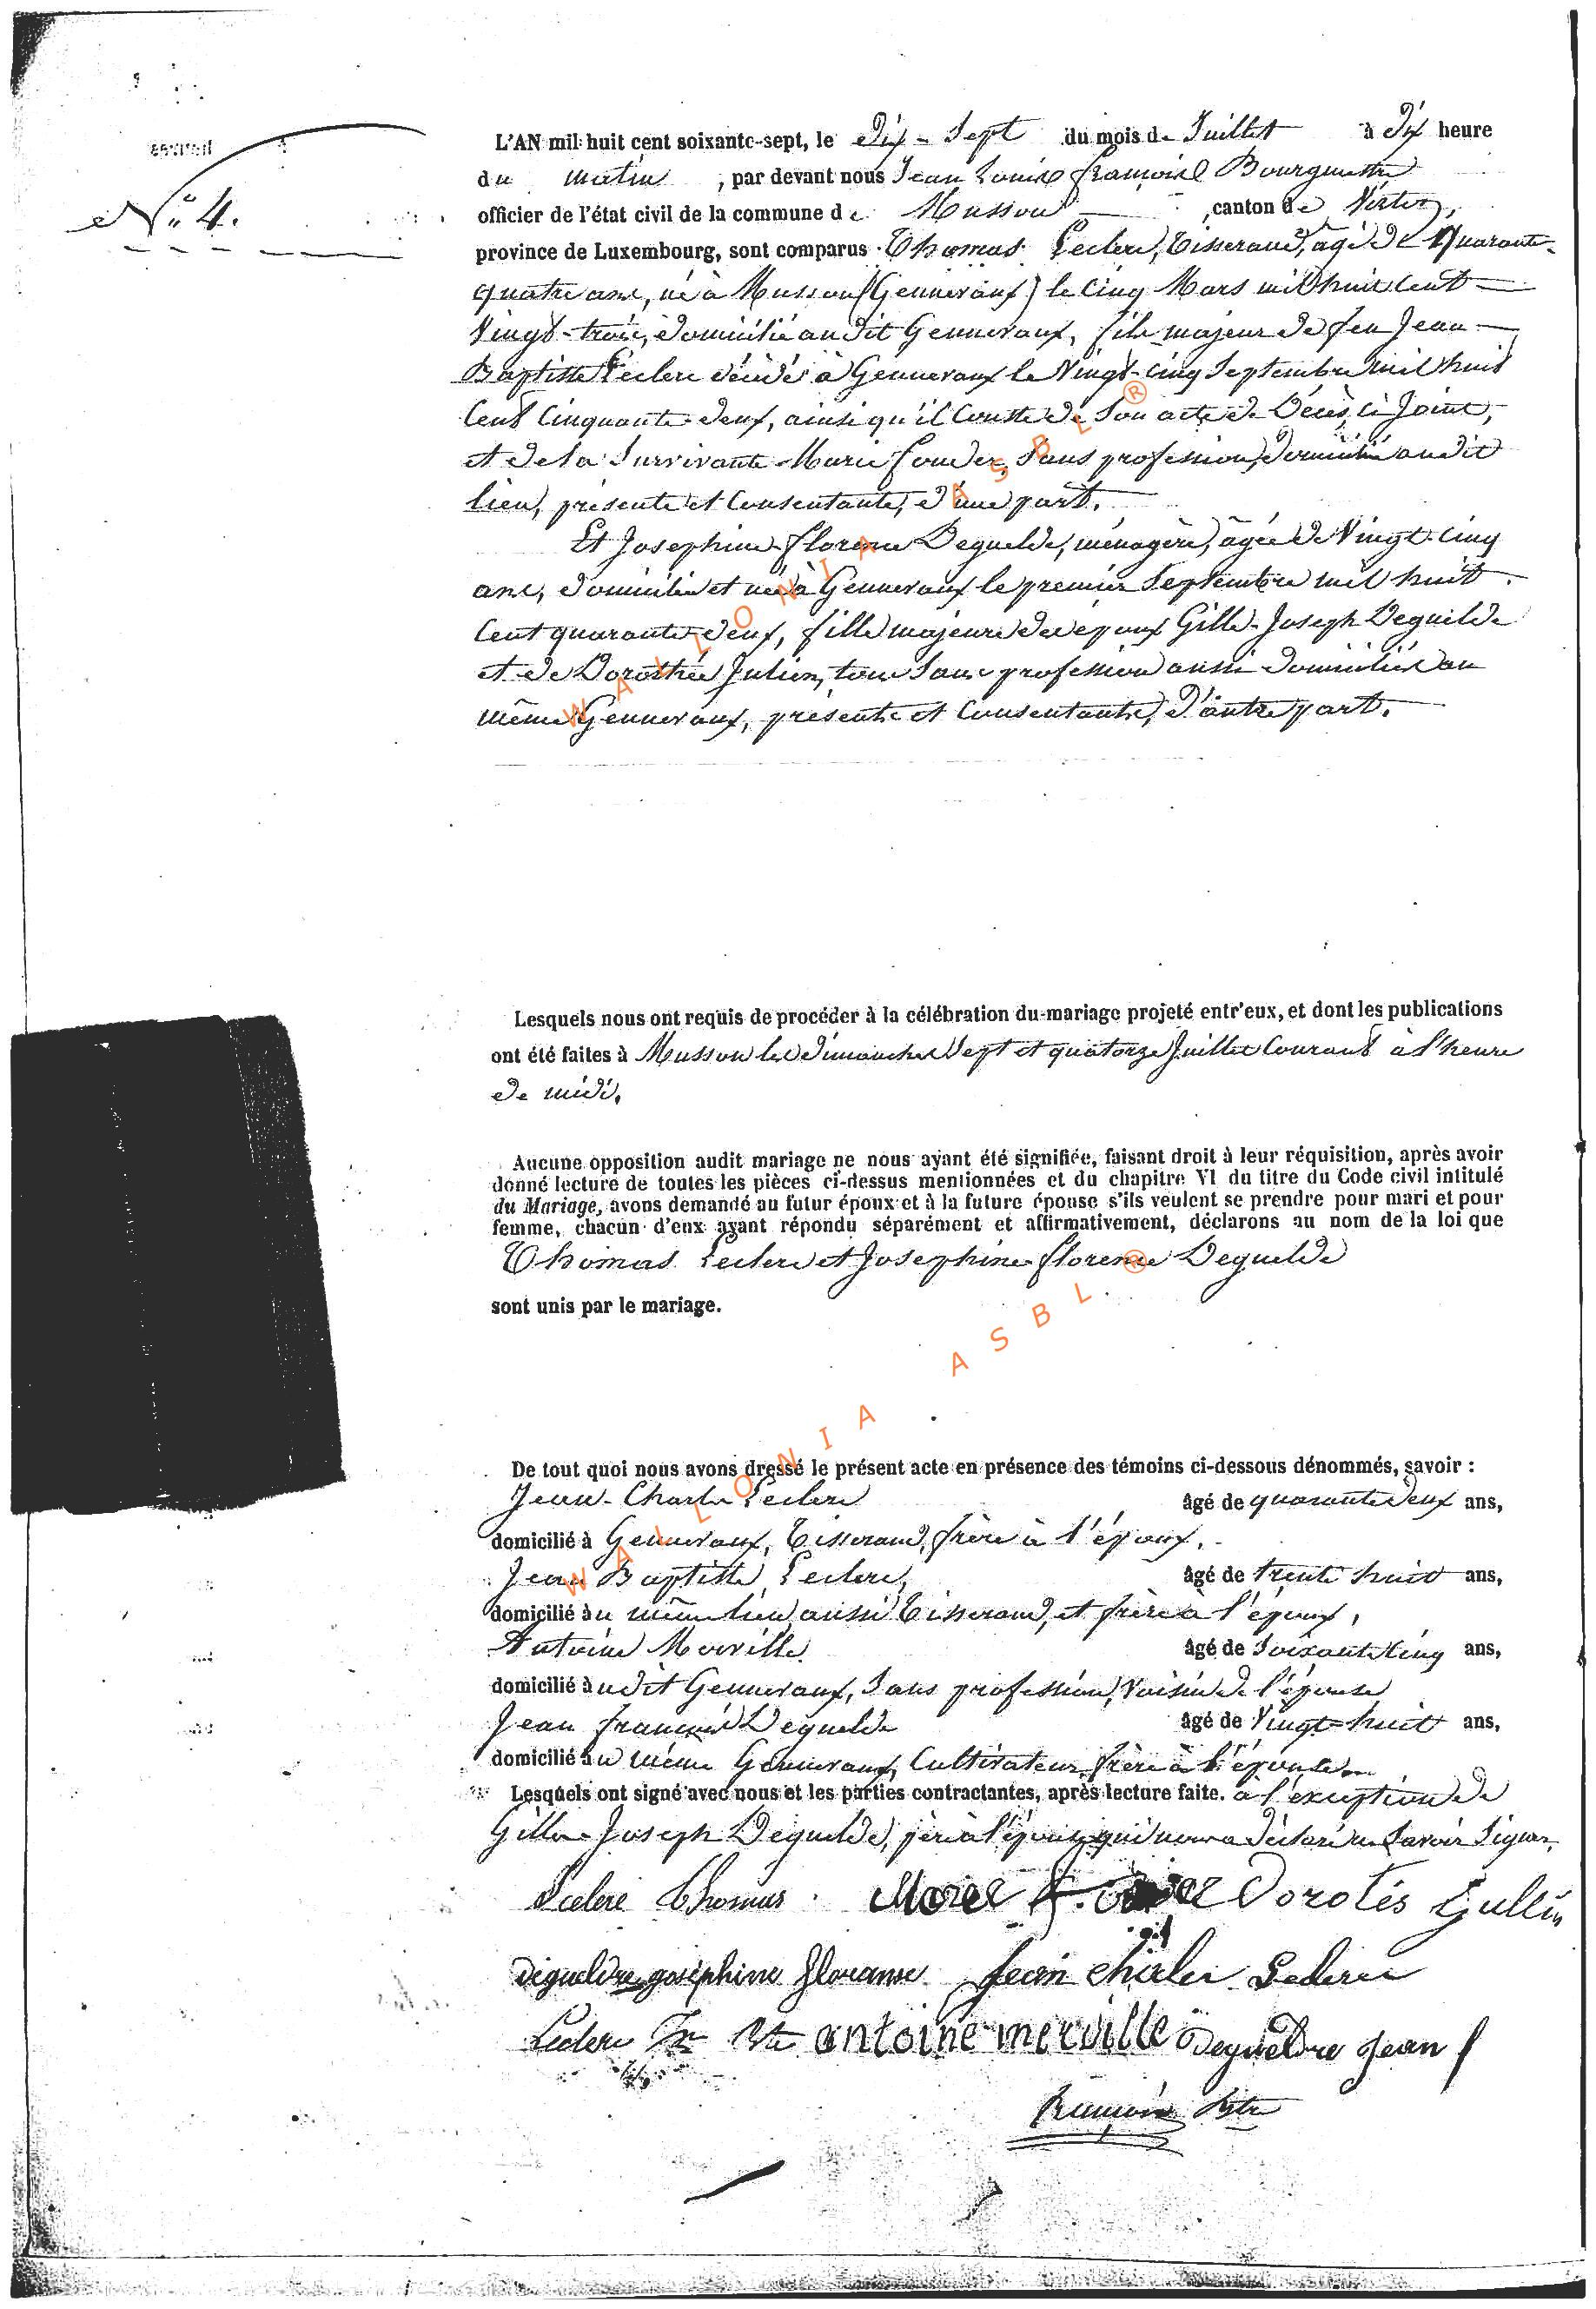 N.º 4.
L'AN mil huit cent soixante-sept, le Dix-Sept du mois de Juillet à Dix heure
du matin, par devant nous Jean Louis françois Bourgmestre
officier de l'état civil de la commune de Musson, canton de Virton,
province de Luxembourg, sont comparus Thomas Leclerc, Tisserand, âgé de Quarante-
quatre ans, né à Musson (Gennevaux) le Cinq Mars mil huit Cent
Vingt-trois, domicilié au dit Gennevaux, fils majeur de feu Jean
Baptiste Leclerc décédé à Gennevaux le Vingt-cinq Septembre mil huit
Cent Cinquante-deux, ainsi qu'il Conste de Son acte de Décès, ci Joint,
et de la Survivante Marie, Sans profession, domiciliée au dit
lieu, présente et Consentante, d'une part.
Et Josephine florence Deguelde, ménagère, âgée de Vingt-Cinq
ans, domiciliée et née à Gennevaux le premier Septembre mil huit
Cent quarante-deux, fille majeure des époux Gille-Joseph Deguelde
et de Dorothée Julien, tous Sans profession aussi domiciliés au
même Gennevaux, présents et Consentants, d'autre part.
Lesquels nous ont requis de procéder à la célébration du mariage projeté entr'eux, et dont les publications
ont été faites à Musson les dimanches Sept et quatorze Juillet Courant à l'heure
de midi.
Aucune opposition audit mariage ne nous ayant été signifiée, faisant droit à leur réquisition, après avoir
donné lecture de toutes les pièces ci-dessus mentionnées et du chapitre VI du titre du Code civil intitulé
du Mariage, avons demandé au futur époux et à la future épouse s'ils veulent se prendre pour mari et pour
femme, chacun d'eux ayant répondu séparément et affirmativement, déclarons au nom de la loi que
Thomas Leclerc et Josephine florence Deguelde
sont unis par le mariage.
De tout quoi nous avons dressé le présent acte en présence des témoins ci-dessous dénommés, savoir :
Jean-Charles Leclerc âgé de quarante deux ans,
domicilié à Gennevaux, Tisserand, frère à l'époux.
Jean Baptiste Leclerc, âgé de trente huit ans,
domicilié au même lieu, aussi Tisserand, et frère à l'époux,
Antoine Merville âgé de Soixante Cinq ans,
domicilié au dit Gennevaux, Sans profession, Voisin de l'épouse
Jean françois Deguelde âgé de Vingt-huit ans,
domicilié au même Gennevaux, Cultivateur, frère à l'épouse
Lesquels ont signé avec nous et les parties contractantes, après lecture faite. à l'exception de
Gille-Joseph Deguelde, père à l'épouse qui nous a déclaré ne Savoir Signer.
Leclerc Thomas Dorotés Gullin
degueldre goséphine floranse Jean Charles Leclerc
Leclerc Jn Bte antoine merville Degueldre Jean f
françois Bstre
WALLONIA ASBL ®
WALLONIA ASBL ®